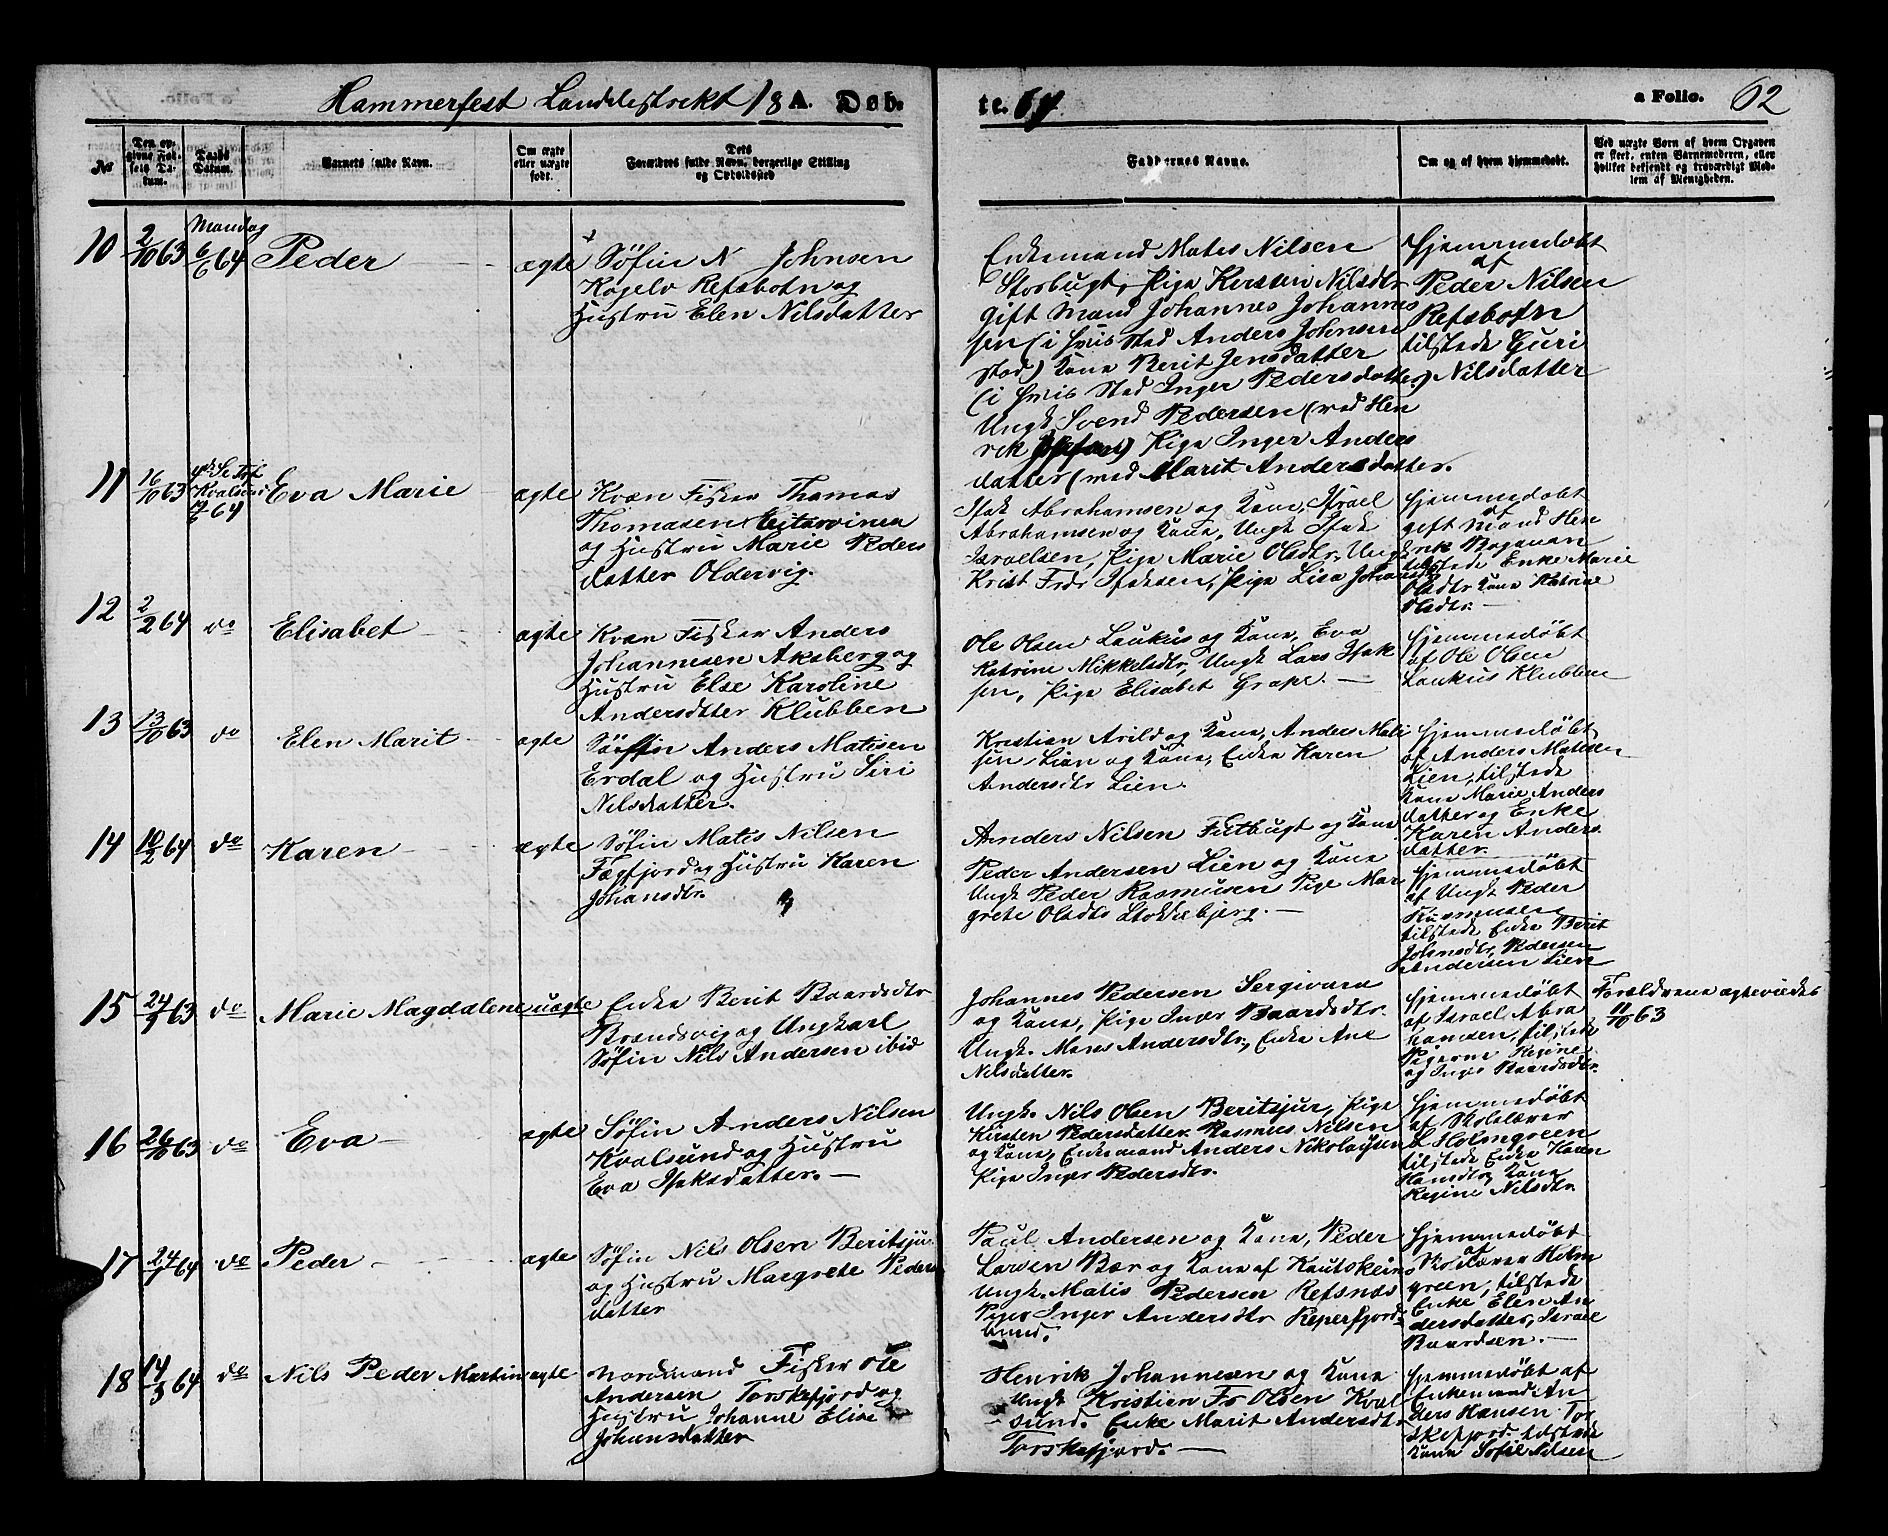 Hammerfest Landdistrikt 18 A. Døb-
te. 64. a Folio. 62
No
Den op-
givne Fød-
sels Da-
tum.
Daabs
Datum.
Barnets fulde Navn.
Om ægte
eller uægte
født.
Dets
Forældres fulde Navn, borgerlige Stilling
og Opholdssted
Faddernes Navne.
Om og af hvem hjemmedøbt.
Ved uægte Børn af hvem Opgaven
er skeet, enten Barnemoderen, eller
hvilket bekjendt og troværdigt Med-
lem af Menigheden.
10 2/10 63 Mandag 6/6 64 Peder ægte Søfin N Johnsen
Kogelv Refsbotn og
Hustru Elen Nilsdatter
Enkemand Mates Nilsen
Storbugt, Pige Kersten Nilsdtr
gift Mand Johannes Johannes
sen (i hvis Sted Anders Johnsen
stod) Kone Berit Jensdatter
(i hvis Sted Inger Pedersdatter)
Ungk Svend Pedersen (ved Hen
rik) Pige Inger Anders
datter (ved Marit Andersdatter.
Hjemmedøbt
af
Peder Nilsen
Refsbotn
tilstede Guri
Nilsdatter
11 16/10 63 Kvalsund 64 Eva Marie ægte Kvæn Fisker Thomas
Thomasen
og Hustru Marie Peders
datter Oldervig.
Isak Abrahamsen og Kone, Israel
Abrahamsen og Kone, Ungk Isak
Israelsen, Pige Marie Olsdtr, Ungk
Krist Fredr Isaksen, Pige Lisa Johansdtr
Hjemmedøbt
af
gift Mand Hen
rik
tilstede Enke Marie
Olsdtr Kone Katrine
Olsdtr.
12 2/2 64 do Elisabet ægte Kvæn Fisker Anders
Johannesen Aksberg og
Hustru Else Karoline
Andersdtter Klubben
Ole Olsen Laukus og Kone, Eva
Katrine Mikkelsdtr, Ungk Lars Isak
sen, Pige Elisabet Grape.
Hjemmedøbt
af Ole Olsen
Laukus Klubben
13 13/10 63 do Elen Marit ægte Søfin Anders Matisen
Erdal og Hustru Siri
Nilsdatter.
Kristian Arild og Kone, Anders Mati
sen Lien og Kone, Enke Karen
Andersdtr Lien.
Hjemmedøbt
af Anders Matisen
Lien, tilstede
Kone Marie Anders
datter og Enke
Karen Anders
datter.
14 10/2 64 do Karen ægte Søfin Matis Nilsen
Fægfjord og Hustru Karen
Johansdtr.
Anders Nilsen Fielbugt og Kone
Peder Andersen Lien og Kone
Ungk Peder Rasmusen Pige Mar
grete Olsdtr Stokkebjerg.
Hjemmedøbt
af Ungk Peder
Rasmusen
tilstede Enke Berit
Johnsdtr, Pedersen
Andersen Lien
15 24/9 63 do Marie Magdalene uægte Enke Berit Baardsdtr
Brændsvig og Ungkarl
Søfin Nils Andersen ibid
Johannes Pedersen Sergivara
og Kone, Pige Inger Baardsdtr.
Ungk. Mons Andersdtr, Enke Ane
Nilsdatter.
Hjemmedøbt
af Israel Abra
hamsen, tilstede
Pigerne Regine
og Inger Baardsdtr.
Forældrene ægteviedes
11/10 63
16 26/10 63 do Eva ægte Søfin Anders Nilsen
Kvalsund og Hustru
Eva Isaksdatter.
Ungk. Nils Olsen Beritsjur, Pige
Kirsten Pedersdatter. Rasmus Nilsen
og Kone, Enkemand Anders Nikolaysen
Pige Inger Pedersdtr.
Hjemmedøbt
af Skolelærer
L Holmgreen
tilstede Enke Karen
Hansdtr, Kone
Regine Nilsdtr.
17 24/1 64 do Peder ægte Søfin Nils Olsen Beritsju
og Hustru Margrete Peders
datter
Paul Andersen og Kone, Peder
Larsen Bær og Kone af Kautokein
Ungk. Matis Pedersen Refsnæs
Pige Inger Andersdtr Reperfjord-
bund.
Hjemmedøbt
af
Skolelærer Holm
green, tilstede
Enke Elen An
dersdatter, Israel
Baardsen.
18 14/3 64 do Nils Peder Martin ægte Nordmand Fisker Ole
Andersen Torskefjord og
Hustru Johanne Elise
Johansdatter
Henrik Johannesen og Kone
Ungk Kristian Fr Olsen Kval
sund. Enke Marit Andersdtr
Torskefjord.
Hjemmedøbt af
Enkemand An
ders Hansen Tor
skefjord. tilstede
Kone Sofie Nilsen